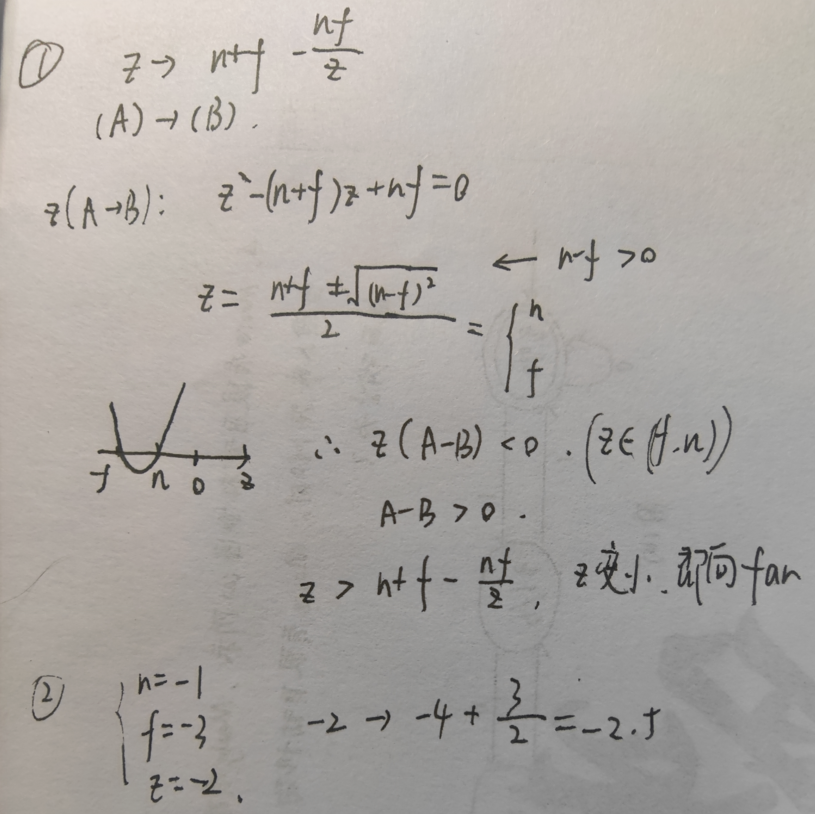 ① z → n+f - nf/z
(A) → (B).
z(A→B): z²-(n+f)z+nf=0
z = (n+f ±√(n-f)²)/2 = { n f ← n-f >0
f n 0 z
∴ z(A-B) <0 . (z∈(f.n))
A-B > 0 .
z > n+f - nf/z , z变小. 即向far
② { n=-1
f=-3 -2 → -4 + 3/2 = -2.5
z=-2.